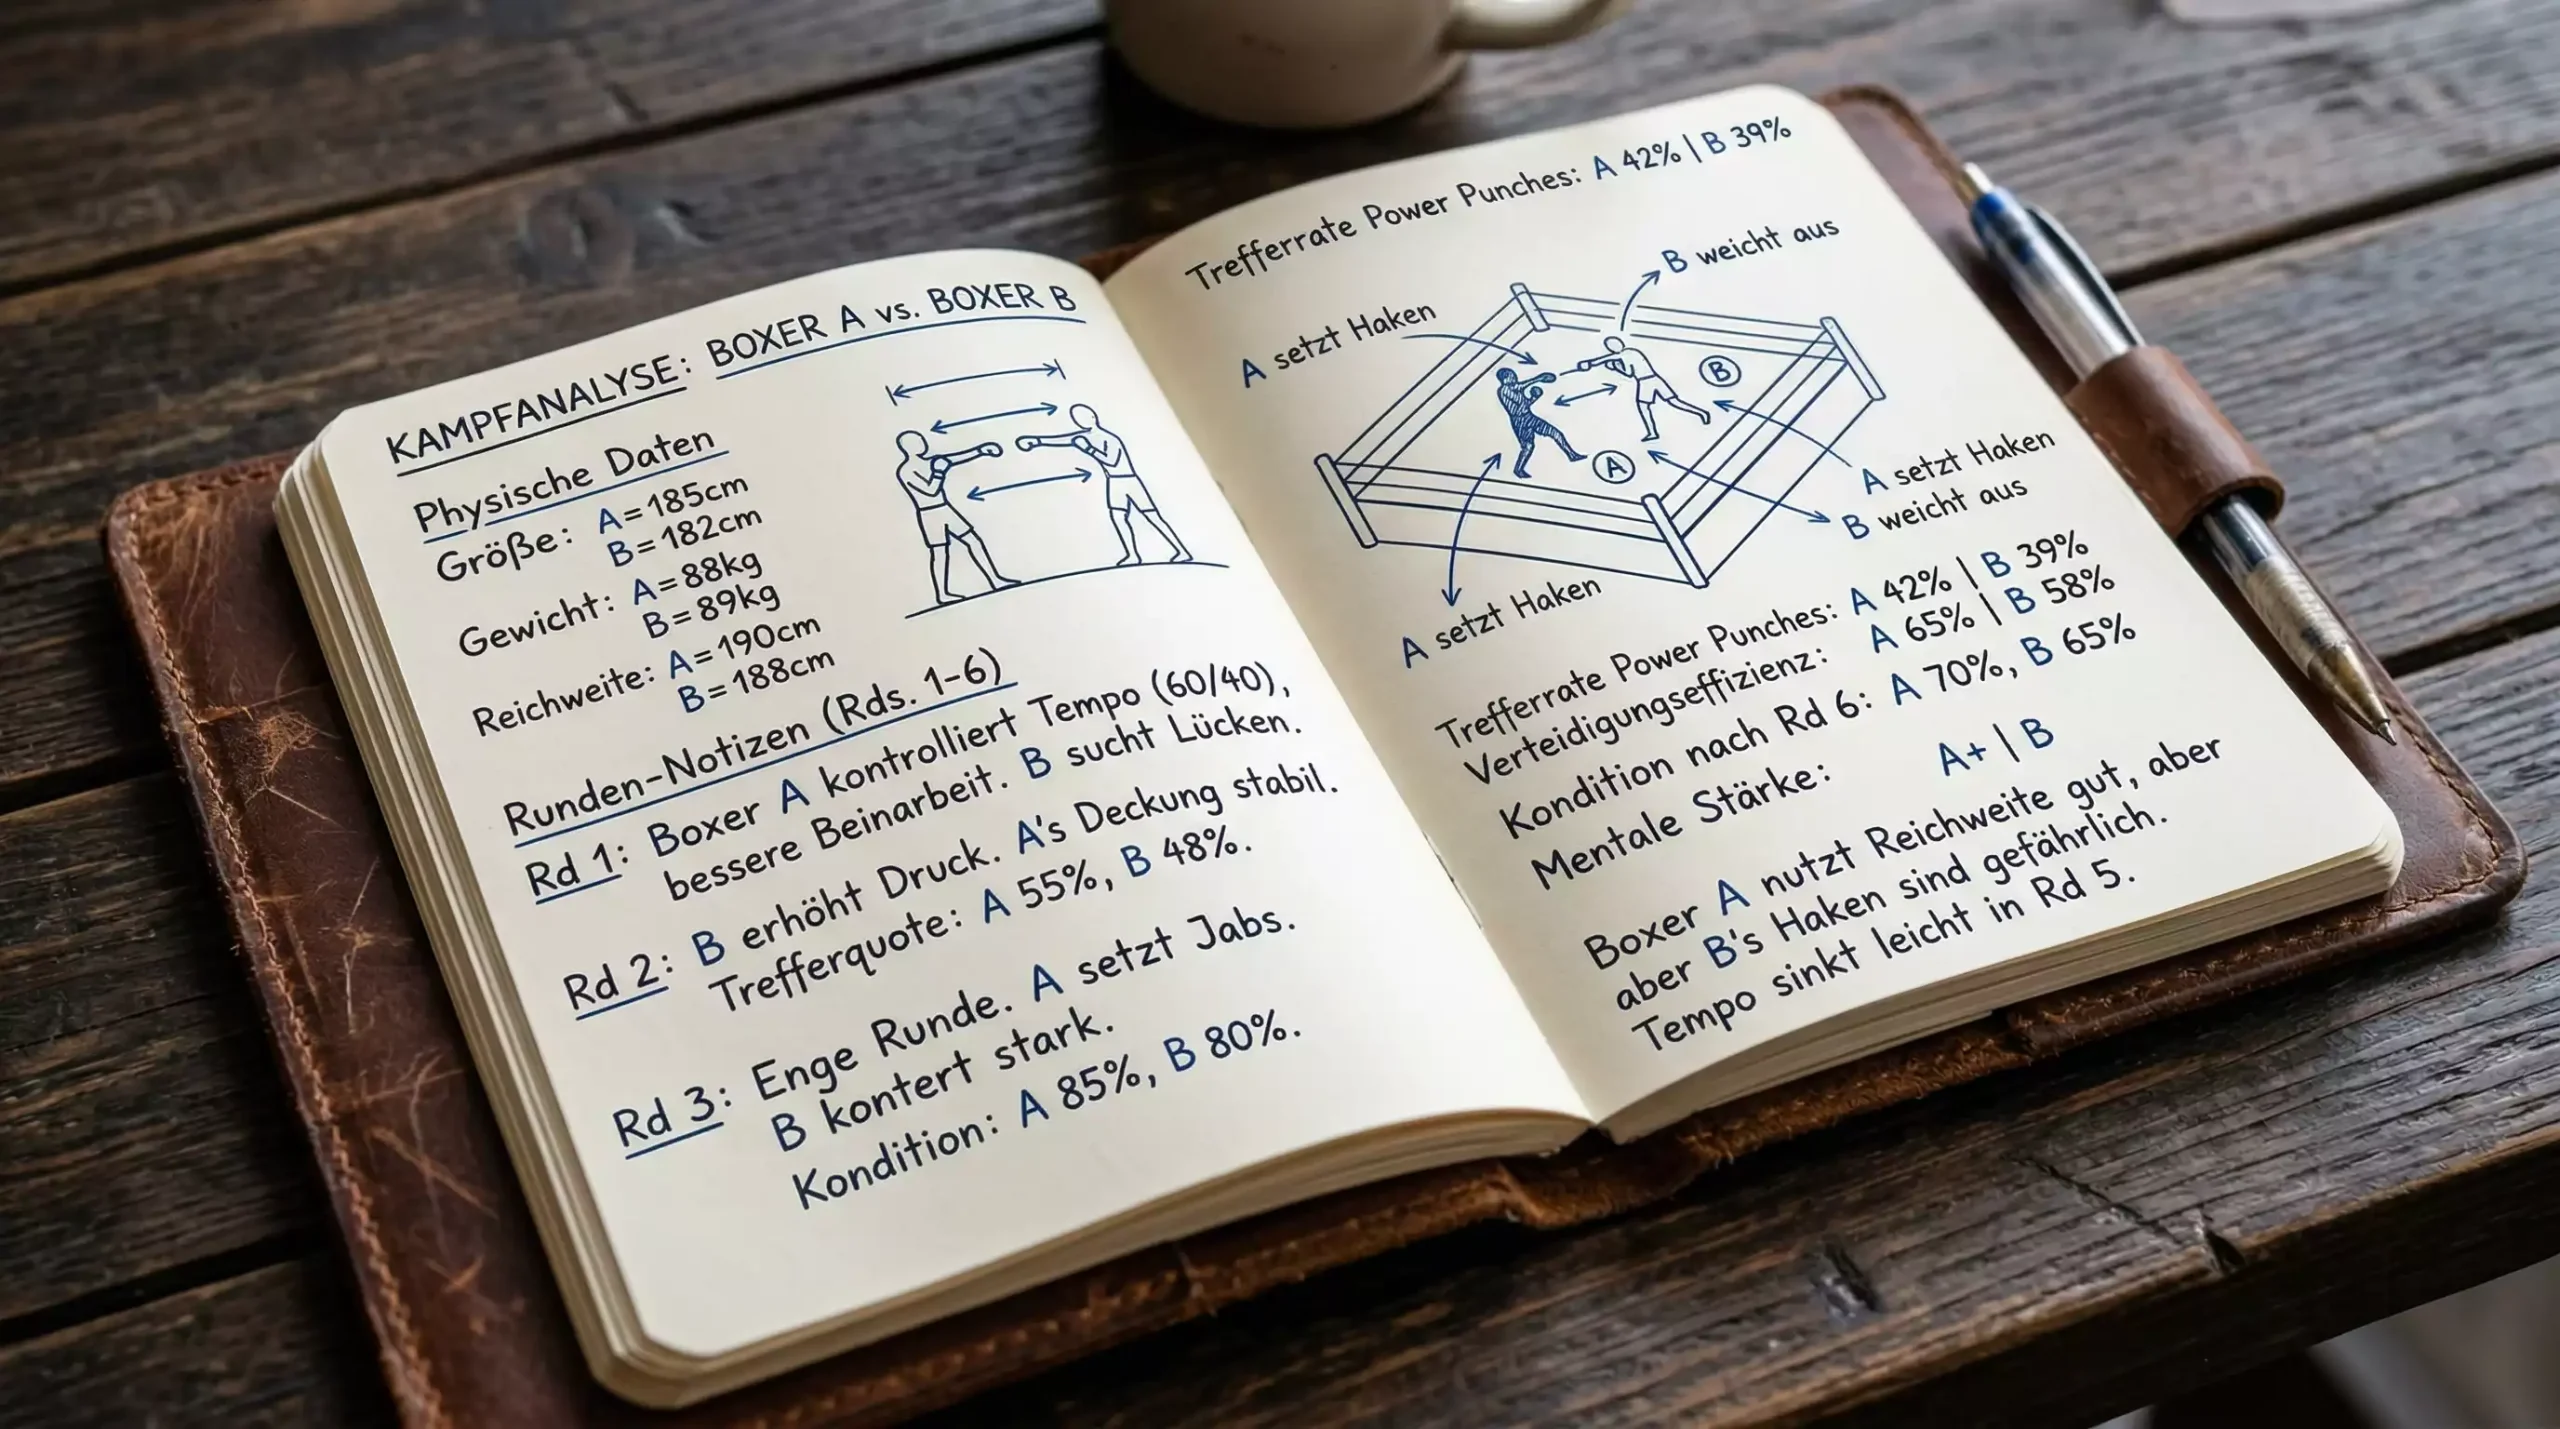 KAMPFANALYSE: BOXER A vs. BOXER B
Physische Daten
Größe: A=185cm
B=182cm
Gewicht: A=88kg
B=89kg
Reichweite: A=190cm
B=188cm
Runden-Notizen (Rds. 1-6)
Rd 1: Boxer A kontrolliert Tempo (60/40),
bessere Beinarbeit. B sucht Lücken.
Rd 2: B erhöht Druck. A's Deckung stabil.
Trefferquote: A 55%, B 48%.
Rd 3: Enge Runde. A setzt Jabs.
B kontert stark.
Kondition: A 85%, B 80%.
Trefferrate Power Punches: A 42% | B 39%
B weicht aus
A setzt Haken
B
A
A setzt Haken
B weicht aus
A setzt Haken
Trefferrate Power Punches: A 42% | B 39%
Verteidigungseffizienz: A 65% | B 58%
Kondition nach Rd 6: A 70%, B 65%
Mentale Stärke: A+ | B
Boxer A nutzt Reichweite gut, aber
aber B's Haken sind gefährlich.
Tempo sinkt leicht in Rd 5.